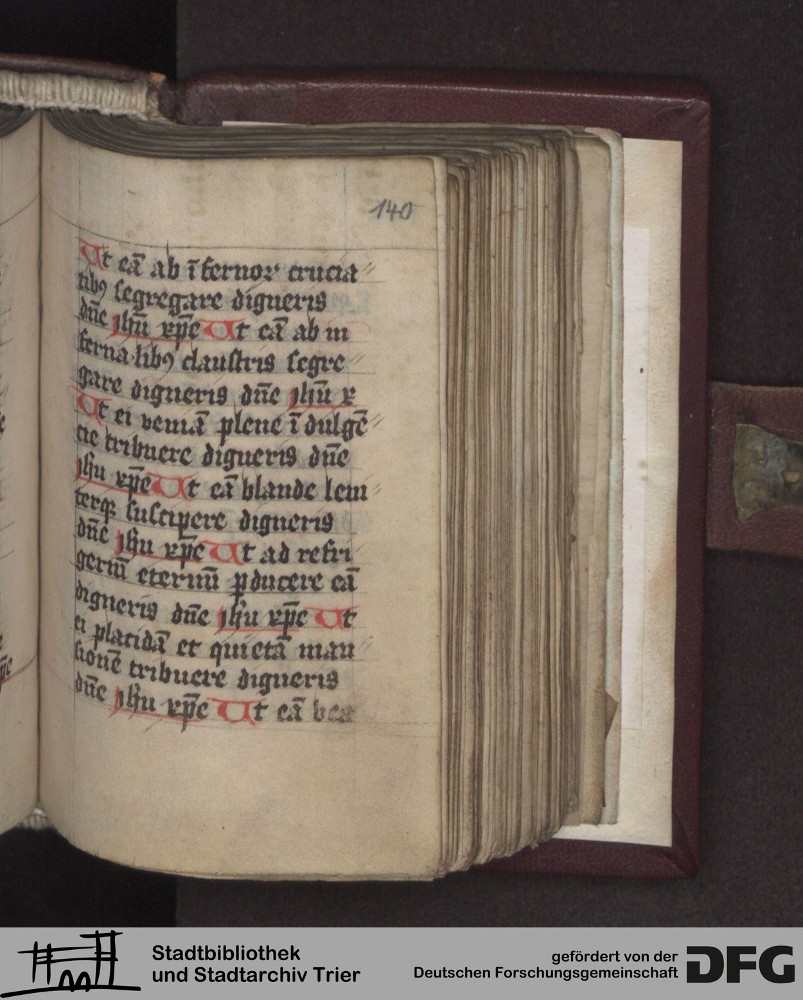 140
Ut eā ab īfernoꝝ crucia
tibꝰ segregare digneris
dn̄e ihū xp̄e Ut eā ab in
fernalibꝰ claustris segre
gare digneris dn̄e ihū x
Ut ei veniā plene īdulgē
cie tribuere digneris dn̄e
ihū xp̄e Ut eā blande leni
terqꝫ suscipere digneris
dn̄e ihū xp̄e Ut ad refri
geriū eternū ꝓducere eā
digneris dn̄e ihū xp̄e Ut
ei placidā et quietā man
sionē tribuere digneris
dn̄e ihū xp̄e Ut eā bea
Stadtbibliothek
und Stadtarchiv Trier
gefördert von der
Deutschen Forschungsgemeinschaft
DFG